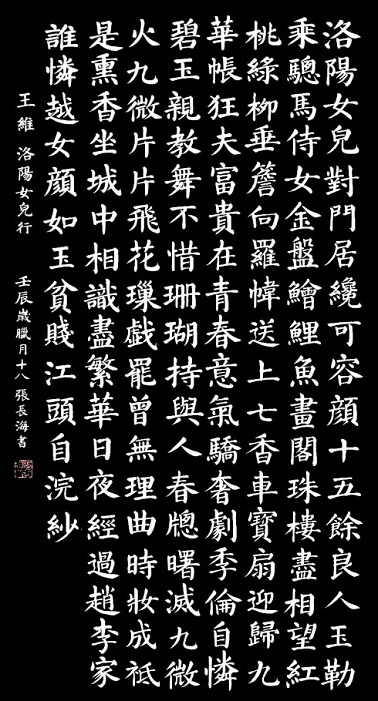 洛陽女兒對門居纔可容顏十五餘良人玉勒
乘驄馬侍女金盤鱠鯉魚畫閣珠樓盡相望紅
桃綠柳垂簷向羅幃送上七香車寶扇迎歸九
華帳狂夫富貴在青春意氣驕奢劇季倫自憐
碧玉親教舞不惜珊瑚持與人春牕曙滅九微
火九微片片飛花璅戯罷曾無理曲時妝成祗
是熏香坐城中相識盡繁華日夜經過趙李家
誰憐越女顏如玉貧賤江頭自浣紗
王維 洛陽女兒行 壬辰歲臘月十八張長海書